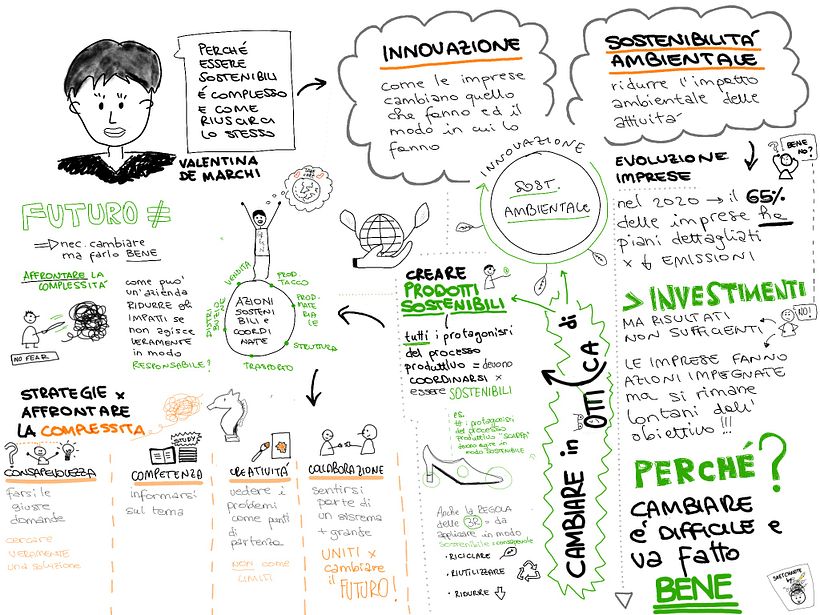 PERCHÉ
ESSERE
SOSTENIBILI
É COMPLESSO
E COME
RIUSCIRCI
LO STESSO
VALENTINA
DE MARCHI
INNOVAZIONE
come le imprese
cambiano quello
che fanno ed il
modo in cui lo
fanno
SOSTENIBILITÁ
AMBIENTALE
ridurre l'impatto
ambientale delle
attività
INNOVAZIONE
SOST.
AMBIENTALE
EVOLUZIONE
IMPRESE
BENE
NO?
nel 2020 → il 65%
delle imprese ha
piani dettagliati
x ↓ EMISSIONI
> INVESTIMENTI
MA RISULTATI
NON SUFFICIENTI
NO!
LE IMPRESE FANNO
AZIONI IMPEGNATE
ma si rimane
lontani dall'
obiettivo !!!
PERCHÉ?
CAMBIARE
e' DIFFICILE e
va fatto
BENE
SKETCHNOTE
by:
CAMBIARE in OTTICA di
CREARE
PRODOTTI
SOSTENIBILI
tutti i protagonisti
del processo
produttivo = devono
COORDINARSI x
essere SOSTENIBILI
ES.
Anche la REGOLA
delle 3R = da
applicare in modo
sostenibile e consapevole
• RICICLARE
• RIUTILIZZARE
• RIDURRE
FUTURO ≠
⇒ nec. cambiare
ma farlo BENE
AFFRONTARE LA
COMPLESSITÀ
NO FEAR
come può
un'azienda
RIDURRE gli
IMPATTI se
non agisce
VERAMENTE
in modo
RESPONSABILE?
AZIONI
SOSTENI
BILI E
COORDI
NATE
VENDITA
PROD.
TACCO
PROD.
MATE
RIA
LE
STRUTTURA
TRASPORTO
DISTRIBUZIONE
STRATEGIE x
AFFRONTARE
LA COMPLESSITÀ
CONSAPEVOLEZZA
farsi le
giuste
domande
cercare
VERAMENTE
una soluzione
STUDY
COMPETENZA
informarsi
sul tema
CREATIVITÁ
vedere i
problemi
come punti
di
partenza
NON come
LIMITI
COLLABORAZIONE
sentirsi
parte di
un sistema
+ grande
UNITI x
cambiare
il FUTURO!